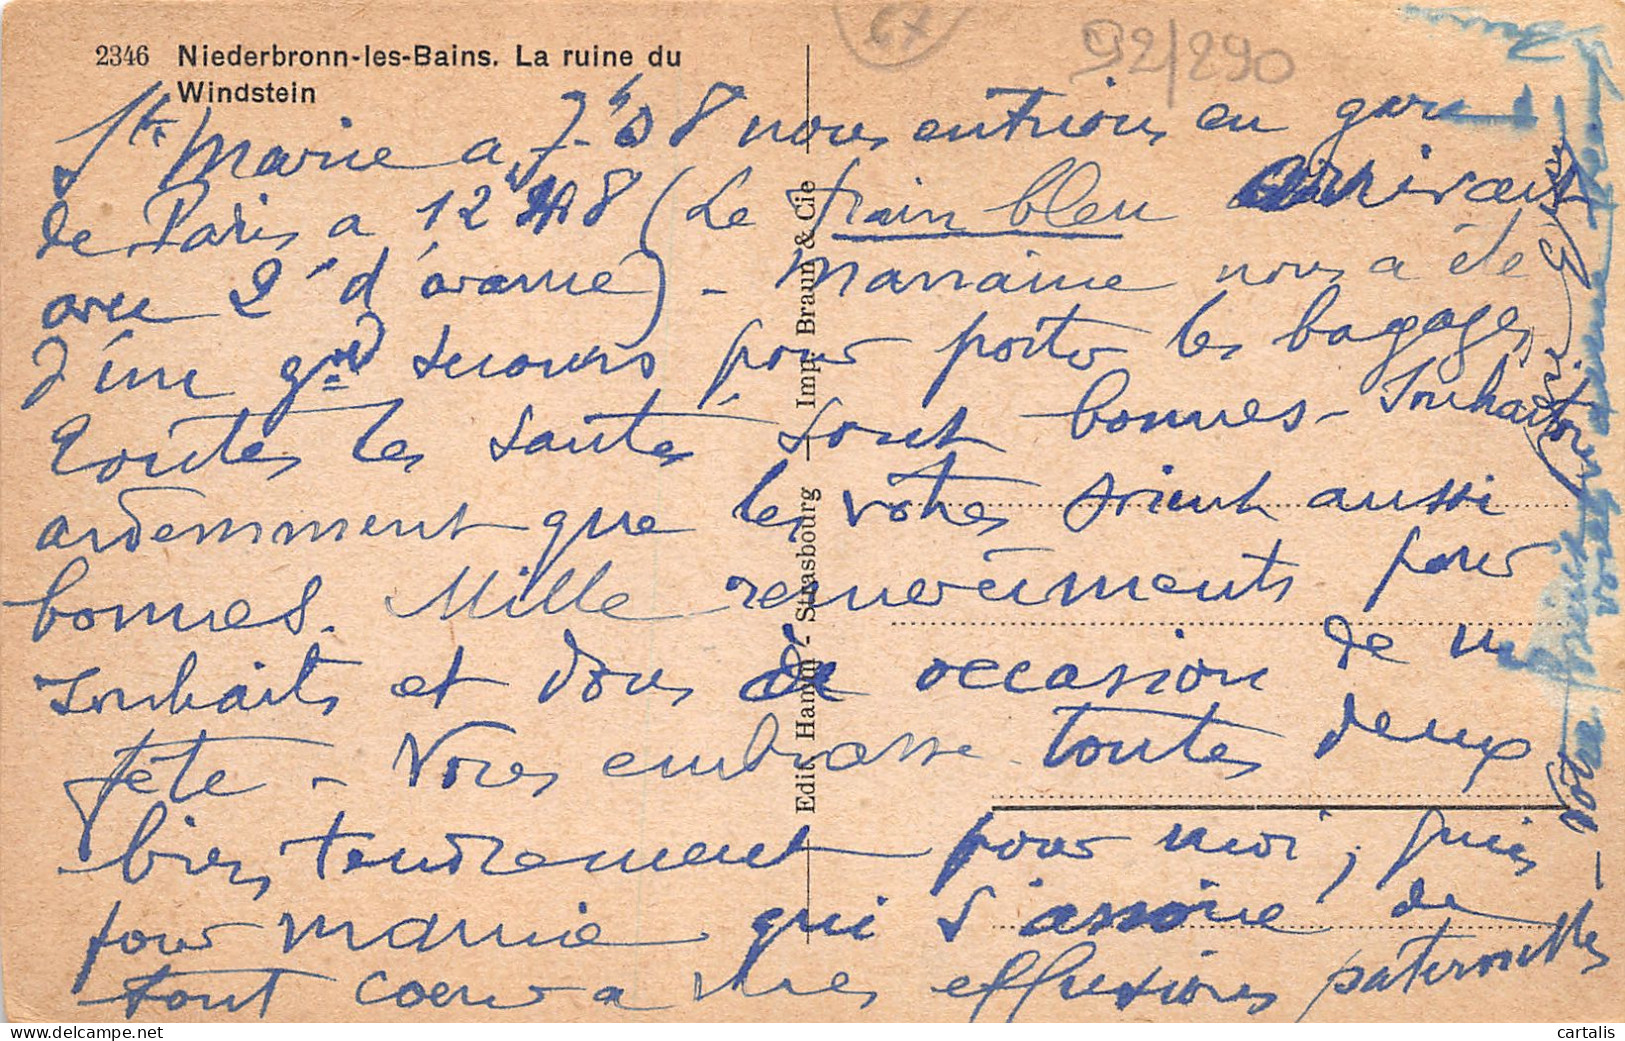 67
92/290
2346 Niederbronn-les-Bains. La ruine du
Windstein
Ste Marie a 7h08 nous entrions en gare
de Paris a 12h48 (Le train bleu arrivant
avec 2' d'avance) - Marraine nous a été
d'une gnd secours pour porter les bagages,
Toutes les santés sont bonnes - Souhaitons
ardemment que les vôtres soient aussi
bonnes. Mille remerciments pour
souhaits et dons de occasion de m
fête - Vous embrasse toutes deux
bien tendrement pour moi, puis
pour mamie qui s'associe de
tout coeur a mes effusions paternelles
Edit. Hamm - Strasbourg — Imp. Braun & Cie
Votre
cartalis